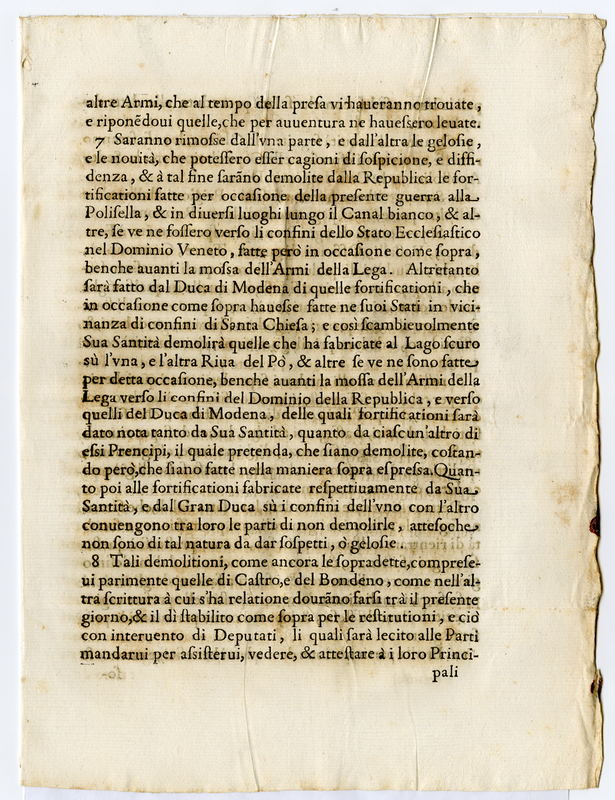 altre Armi, che al tempo della preſa vi haueranno trouate,
e riponẽdoui quelle,che per auuentura ne haueſſero leuate.
7 Saranno rimoſſe dall'vna parte, e dall'altra le geloſie,
e le nouità, che poteſſero eſſer cagioni di ſoſpicione, e diffi-
denza, & à tal fine ſarãno demolite dalla Republica le for-
tificationi fatte per occaſione della preſente guerra alla
Poliſella, & in diuerſi luoghi lungo il Canal bianco, & al-
tre, ſe ve ne foſſero verſo li confini dello Stato Eccleſiaſtico
nel Dominio Veneto, fatte però in occaſione come ſopra,
benche auanti la moſſa dell'Armi della Lega. Altretanto
ſarà fatto dal Duca di Modena di quelle fortificationi, che
in occaſione come ſopra haueſſe fatte ne ſuoi Stati in vici-
nanza di confini di Santa Chieſa; e così ſcambieuolmente
Sua Santità demolirà quelle che ha fabricate al Lago ſcuro
sù l'vna, e l'altra Riua del Pò, & altre ſe ve ne ſono fatte
per detta occaſione, benche auanti la moſſa dell'Armi della
Lega verſo li confini del Dominio della Republica, e verſo
quelli del Duca di Modena, delle quali fortificationi ſarà
dato nota tanto da Sua Santità, quanto da ciaſcun'altro di
eſſi Prencipi, il quale pretenda, che ſiano demolite, coſtan-
do però,che ſiano fatte nella maniera ſopra eſpreſſa.Quan-
to poi alle fortificationi fabricate reſpettiuamente da Sua
Santità, e dal Gran Duca sù i confini dell'vno con l'altro
conuengono tra loro le parti di non demolirle, atteſoche
non ſono di tal natura da dar ſoſpetti, ò geloſie.
8 Tali demolitioni, come ancora le ſopradette,compreſe-
ui parimente quelle di Caſtro,e del Bondeno, come nell'al-
tra ſcrittura à cui s'ha relatione dourãno farſi trà il preſente
giorno,& il dì ſtabilito come ſopra per le reſtitutioni, e ciò
con interuento di Deputati, li quali ſarà lecito alle Parti
mandarui per aſſiſterui, vedere, & atteſtare à i loro Princi-
pali